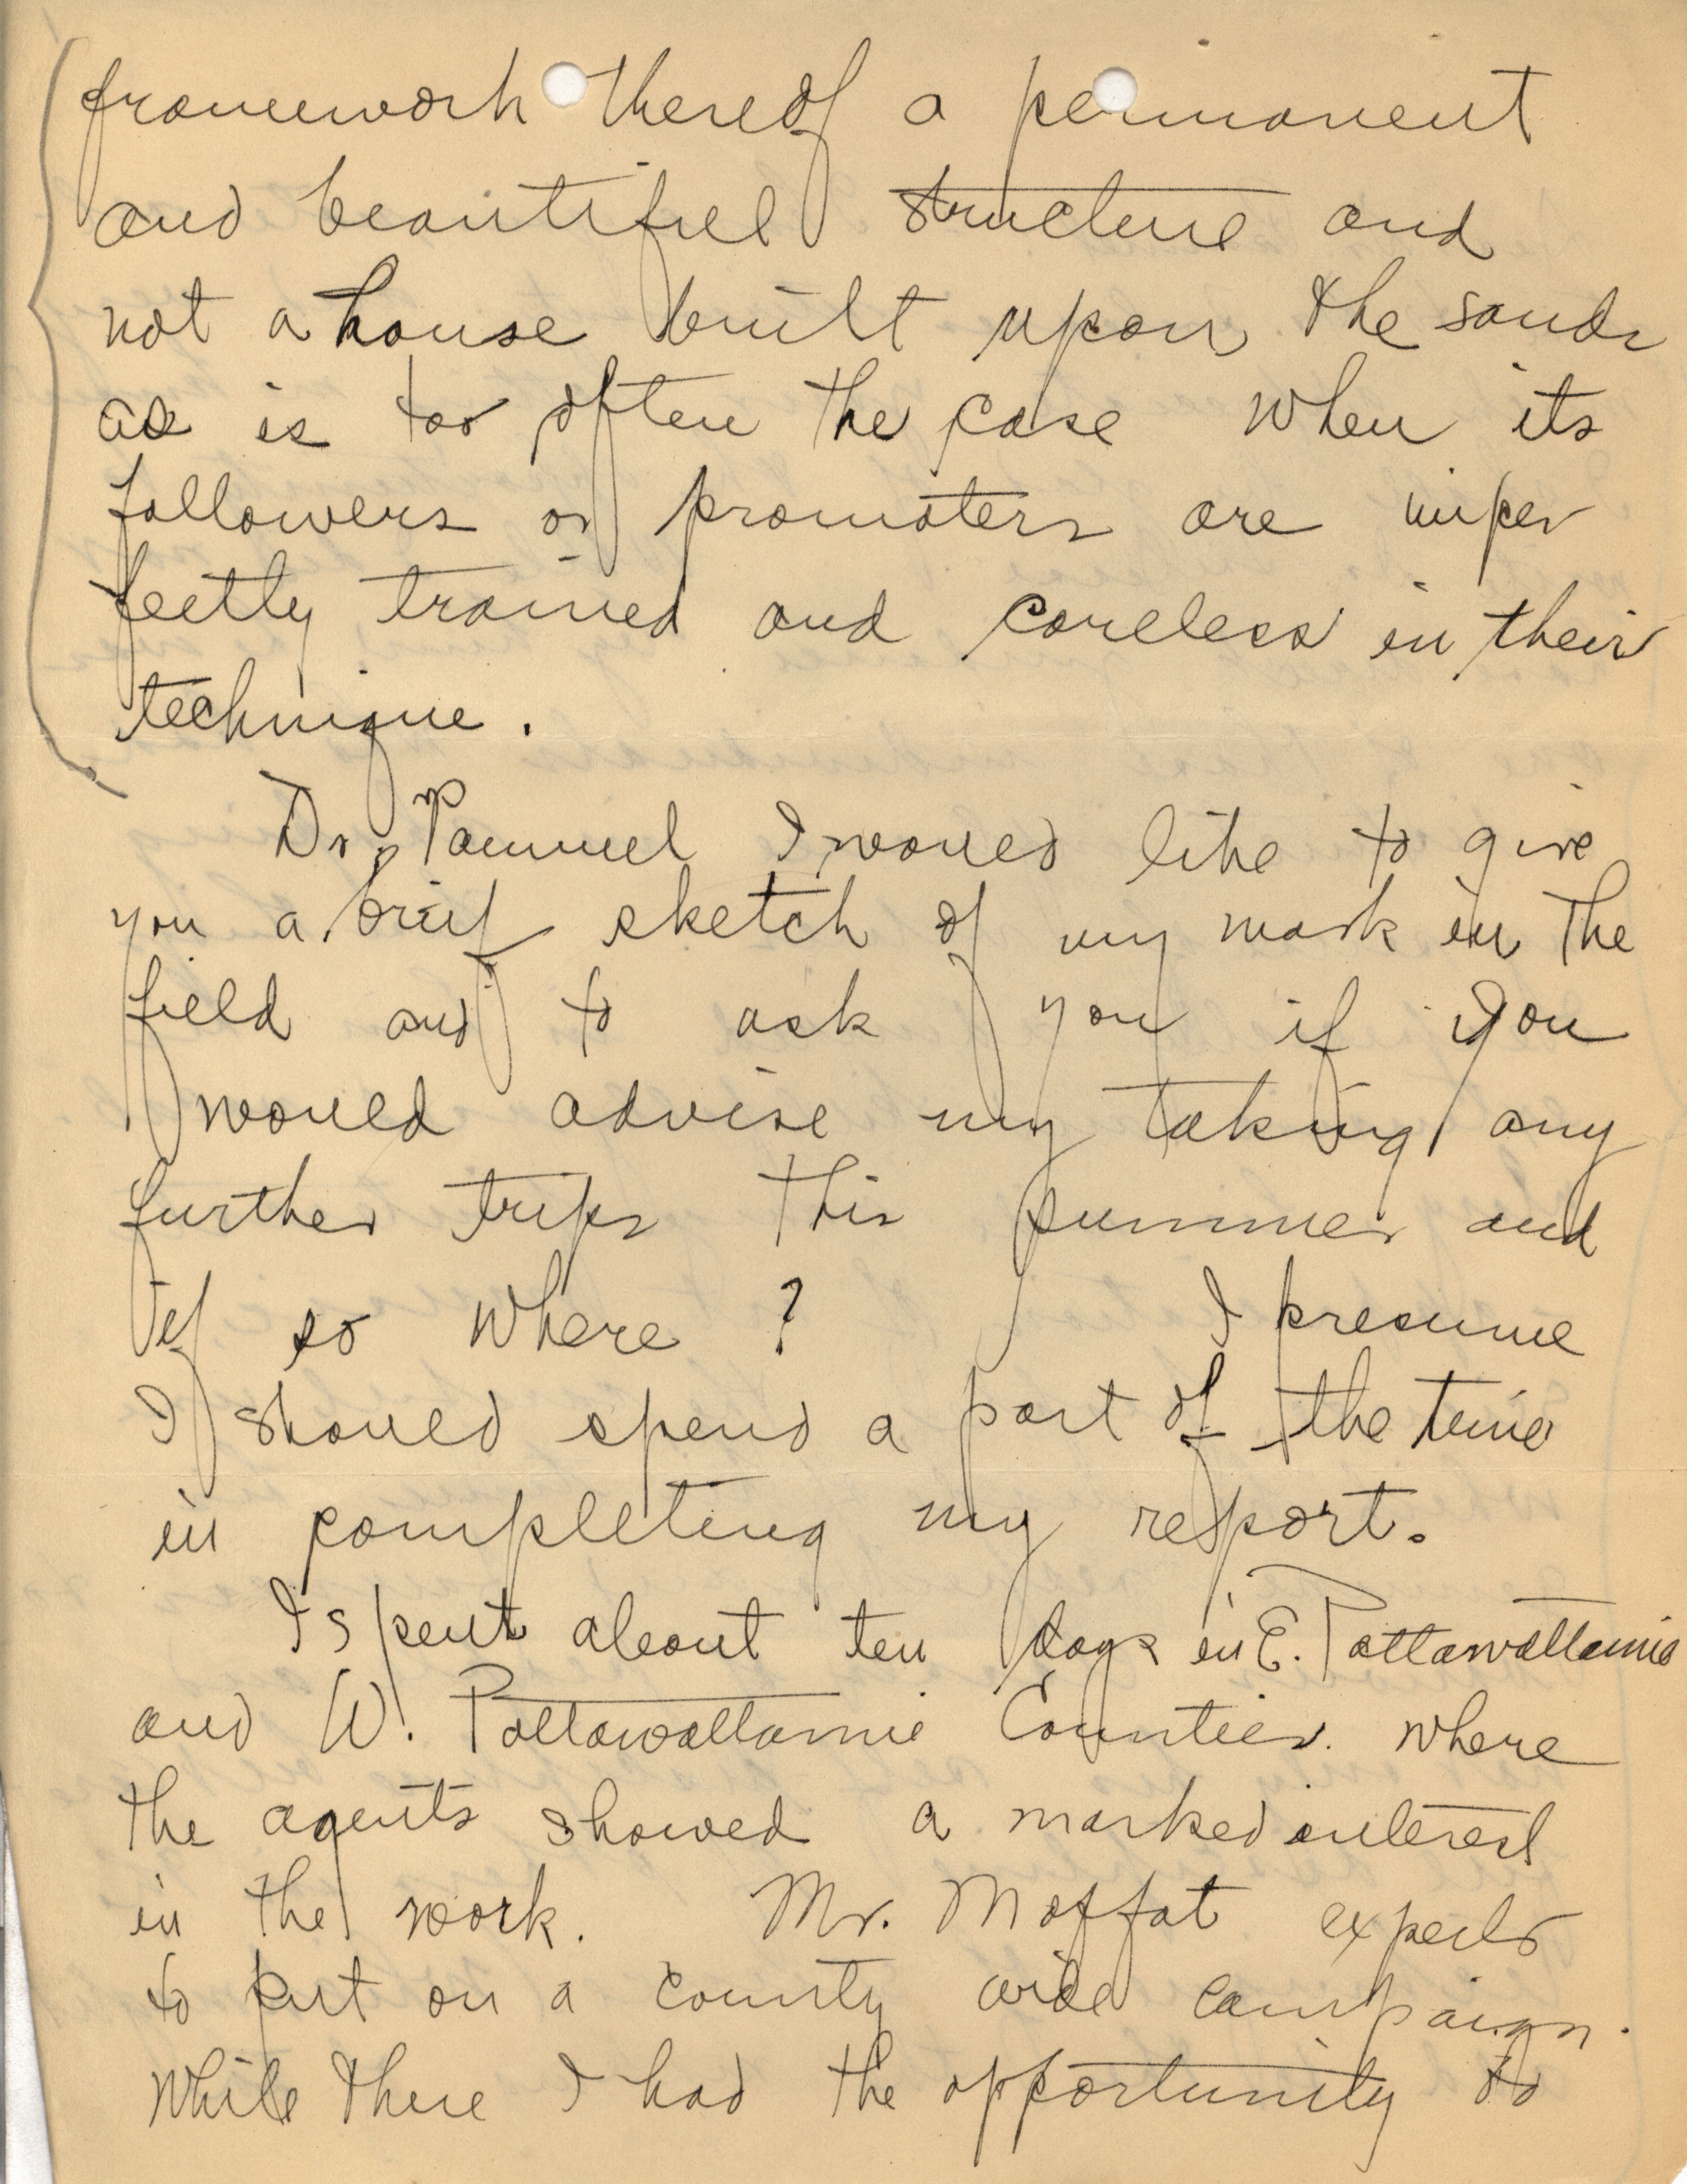 framework thereof a permanent
and beautiful structure and
not a house built upon the sands
as is too often the case when its
followers or promoters are imper
fectly trained and careless in their
technique.
Dr. Pammel I would like to give
you a brief sketch of my work in the
field and to ask you if you
would advise my taking any
further trips this summer and
if so where? I presume
I should spend a part of the time
in completing my report.
I spent about ten days in E. Pottawattamie
and W. Pottawattamie Counties. where
the agents showed a marked interest
in the work. Mr. Moffat expects
to put on a county wide campaign.
While there I had the opportunity to